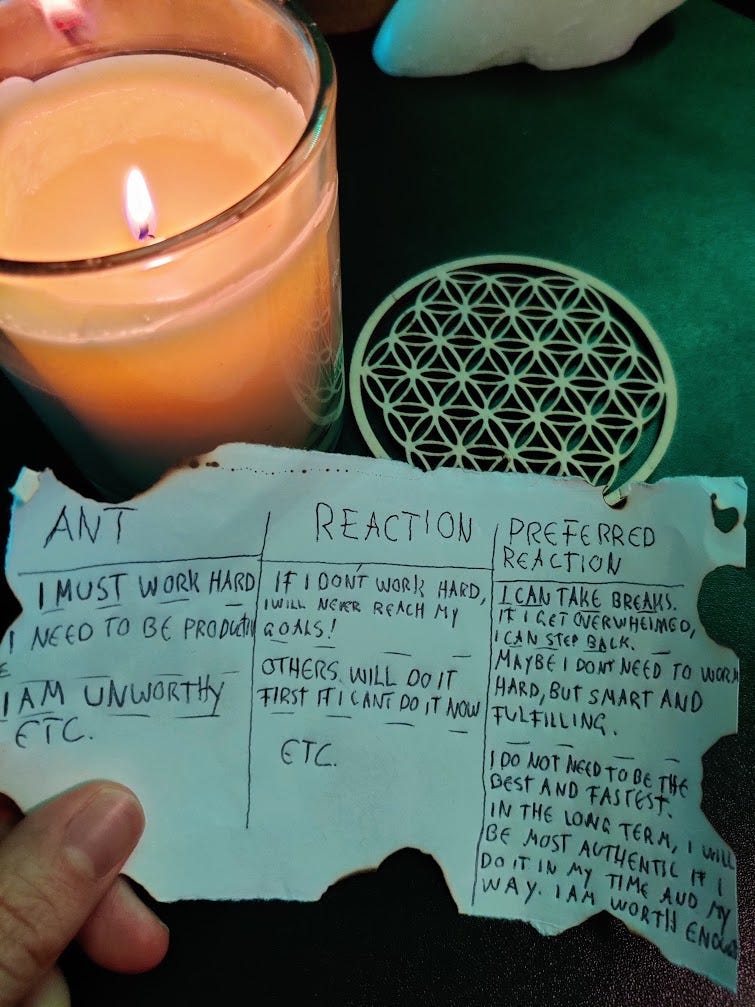 ANT
I MUST WORK HARD
I NEED TO BE PRODUCTIVE
I AM UNWORTHY
ETC.
REACTION
IF I DON'T WORK HARD,
I WILL NEVER REACH MY
GOALS!
OTHERS WILL DO IT
FIRST IF I CANT DO IT NOW
ETC.
PREFERRED
REACTION
I CAN TAKE BREAKS.
IF I GET OVERWHELMED,
I CAN STEP BACK.
MAYBE I DONT NEED TO WORK
HARD, BUT SMART AND
FULFILLING.
I DO NOT NEED TO BE THE
BEST AND FASTEST.
IN THE LONG TERM, I WILL
BE MOST AUTHENTIC IF I
DO IT IN MY TIME AND MY
WAY. I AM WORTH ENOUGH